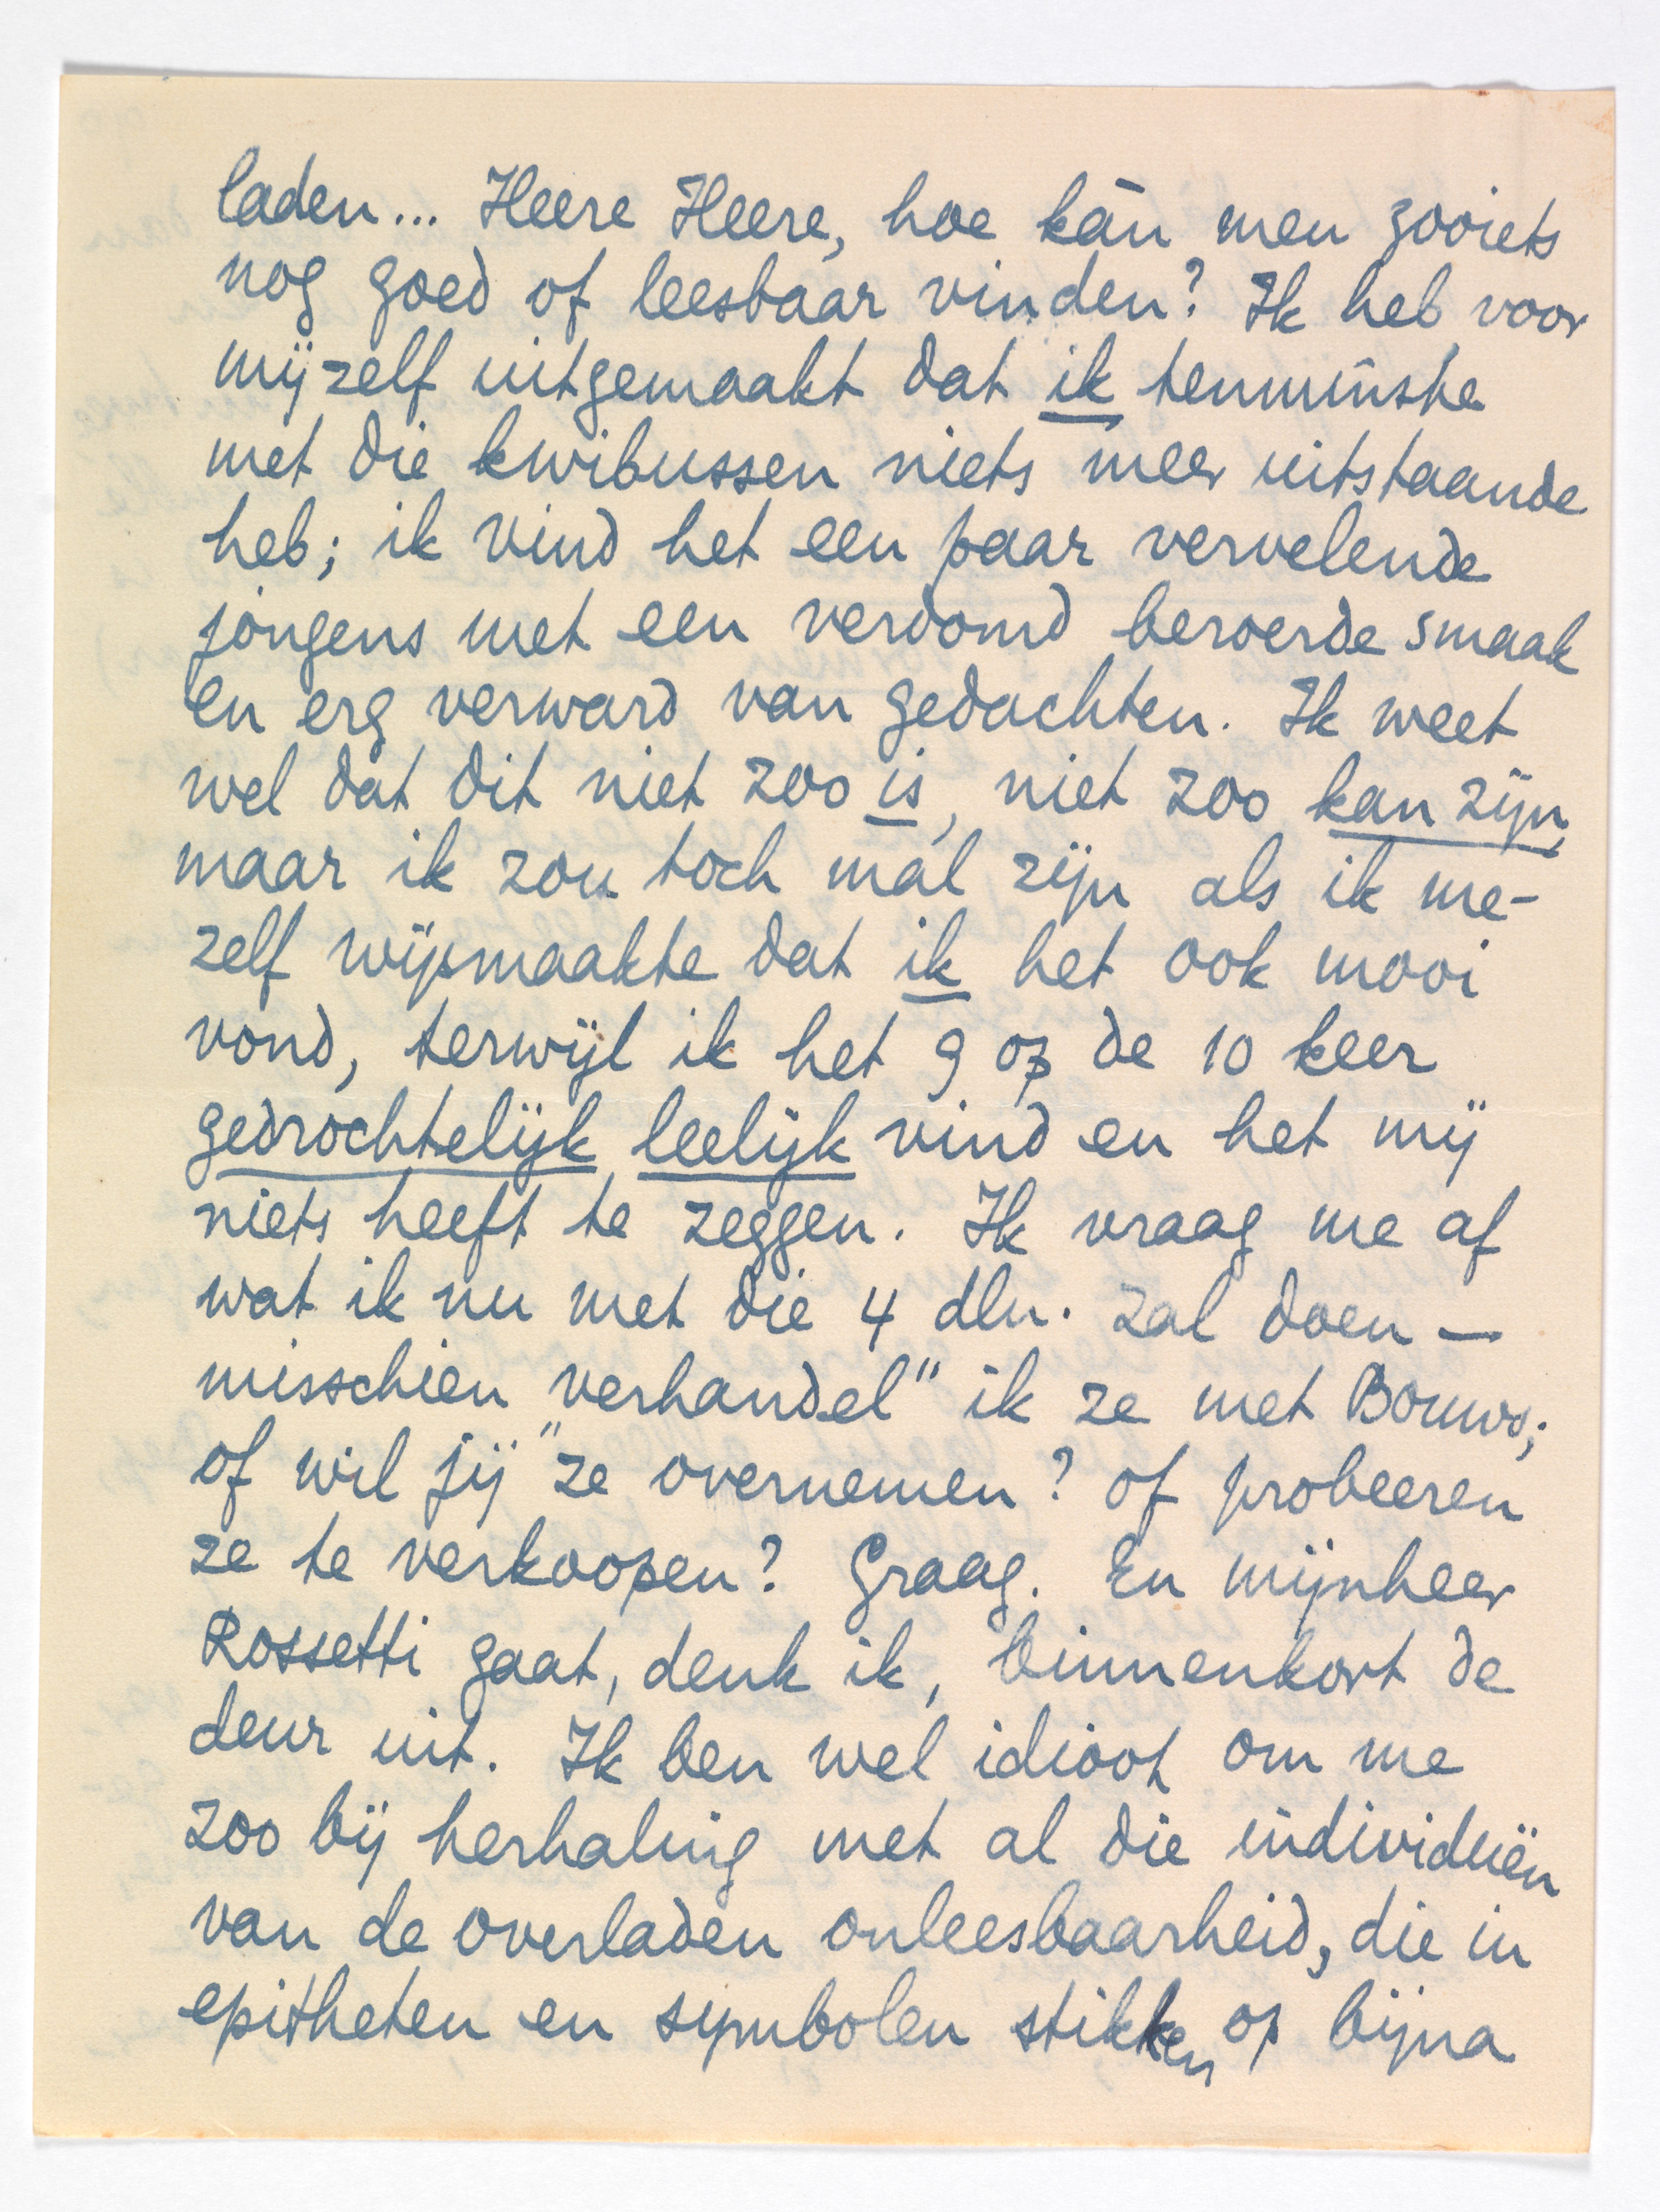 laden... Heere Heere, hoe kán men zooiets
nog goed of leesbaar vinden? Ik heb voor
mijzelf uitgemaakt dat ik tenminste
met die kwibussen niets meer uitstaande
heb; ik vind het een paar vervelende
jongens met een verdomd beroerde smaak
en erg verward van gedachten. Ik weet
wel dat dit niet zoo is, niet zoo kan zijn,
maar ik zou toch mal zijn als ik me-
zelf wijsmaakte dat ik het ook mooi
vond, terwijl ik het 9 op de 10 keer
gedrochtelijk leelijk vind en het mij
niets heeft te zeggen. Ik vraag me af
wat ik nu met die 4 dln. zal doen —
misschien „verhandel” ik ze met Bouws;
of wil jij ze overnemen? of probeeren
ze te verkoopen? Graag. En mijnheer
Rossetti gaat, denk ik, binnenkort de
deur uit. Ik ben wel idioot om me
zoo bij herhaling met al die individuën
van de overladen onleesbaarheid, die in
epitheten en symbolen stikken op bijna